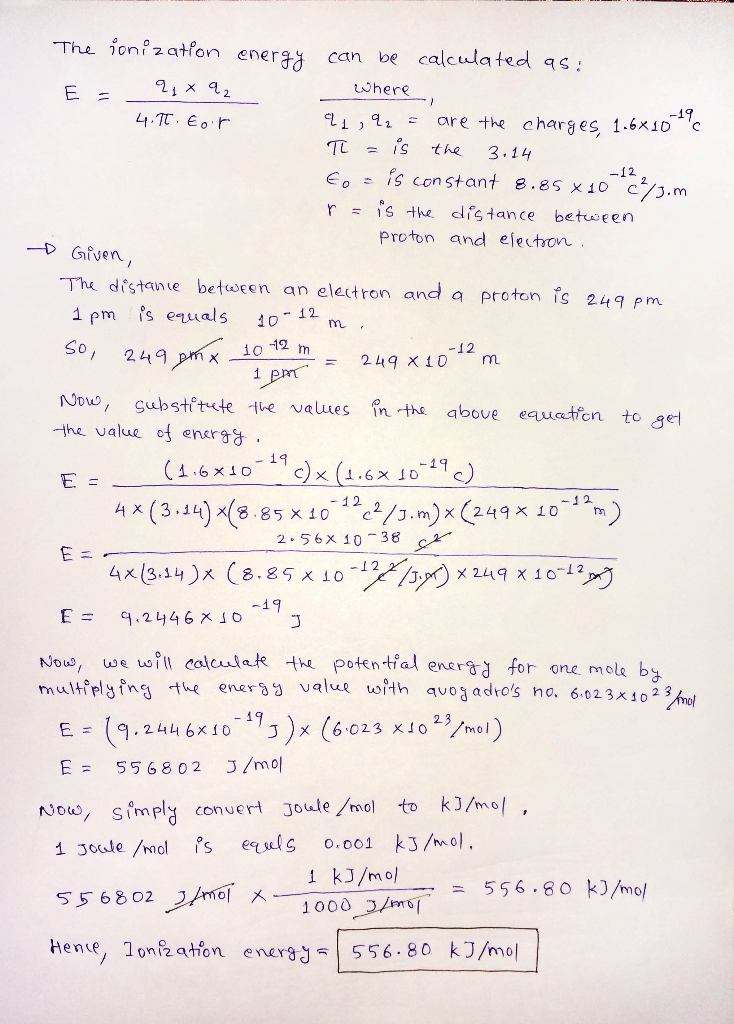 The ionization energy can be calculated as:
E = q1 × q2 / 4.π.ϵo.r
where,
q1, q2 = are the charges, 1.6×10^-19 c
π = is the 3.14
ϵo = is constant 8.85 × 10^-12 c²/J.m
r = is the distance between
proton and electron.
→ Given,
The distance between an electron and a proton is 249 pm
1 pm is equals 10^-12 m.
So, 249 pm × 10^-12 m / 1 pm = 249 × 10^-12 m
Now, substitute the values in the above equation to get
the value of energy.
E = (1.6×10^-19 c) × (1.6× 10^-19 c) / 4 × (3.14) ×(8.85 × 10^-12 c²/J.m) × (249 × 10^-12 m)
E = 2.56× 10^-38 c² / 4×(3.14) × (8.85 × 10^-12 c²/J.m) × 249 × 10^-12 m)
E = 9.2446 × 10^-19 J
Now, we will calculate the potential energy for one mole by
multiplying the energy value with avogadro's no. 6.023×10^23/mol
E = (9.2446×10^-19 J) × (6.023 ×10^23/mol)
E = 556802 J/mol
Now, simply convert Joule/mol to kJ/mol.
1 Joule/mol is equls 0.001 kJ/mol.
556802 J/mol × 1 kJ/mol / 1000 J/mol = 556.80 kJ/mol
Hence, Ionization energy = 556.80 kJ/mol